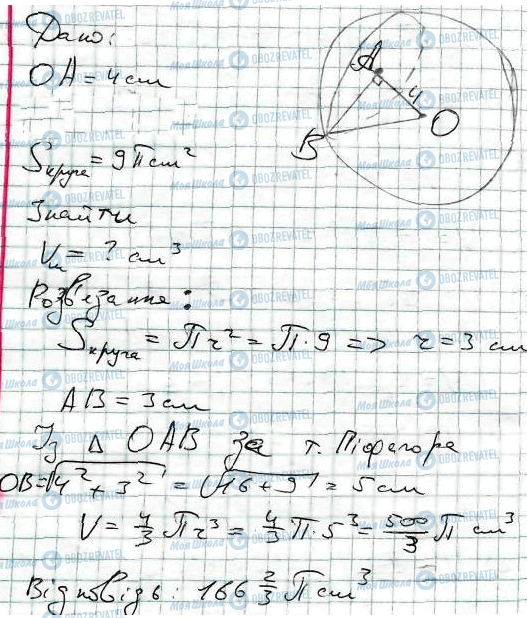 Дано:
OA = 4 см
A
4
O
B
Sкруга = 9π см²
Знайти
Vк = ? см³
Розв'язання:
Sкруга = πr² = π·9 => r = 3 см
AB = 3 см
Із Δ OAB за т. Піфагора
OB = √4² + 3² = √16 + 9 = 5 см
V = 4/3 πr³ = 4/3 π·5³ = 500/3 π см³
Відповідь: 166 2/3 π см³